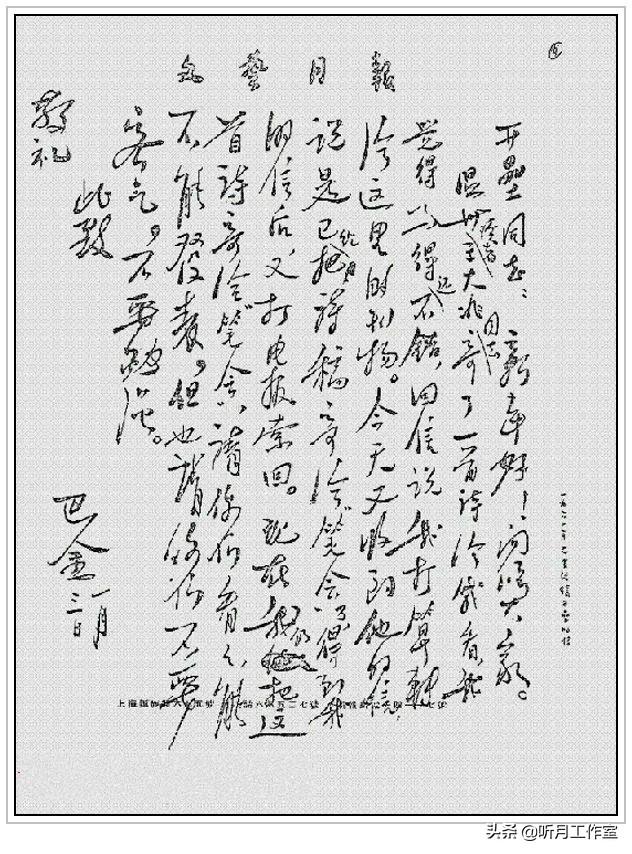 文藝月報
开垒同志:新年好!问候大家。
温州读者王大兆同志寄了一首诗给我看,我
觉得写得还不错,回信说我打算转
给这里的刊物。今天又收到他的信,
说是已经把诗稿寄给“笔会”了。得到我
的信后,又打电报索回。现在我仍把这
首诗寄给“笔会”,请你们看看能
不能发表,但也请你们不要
客气。不要勉强。
此致
敬礼
巴金
一月
三日
头条 @听月工作室